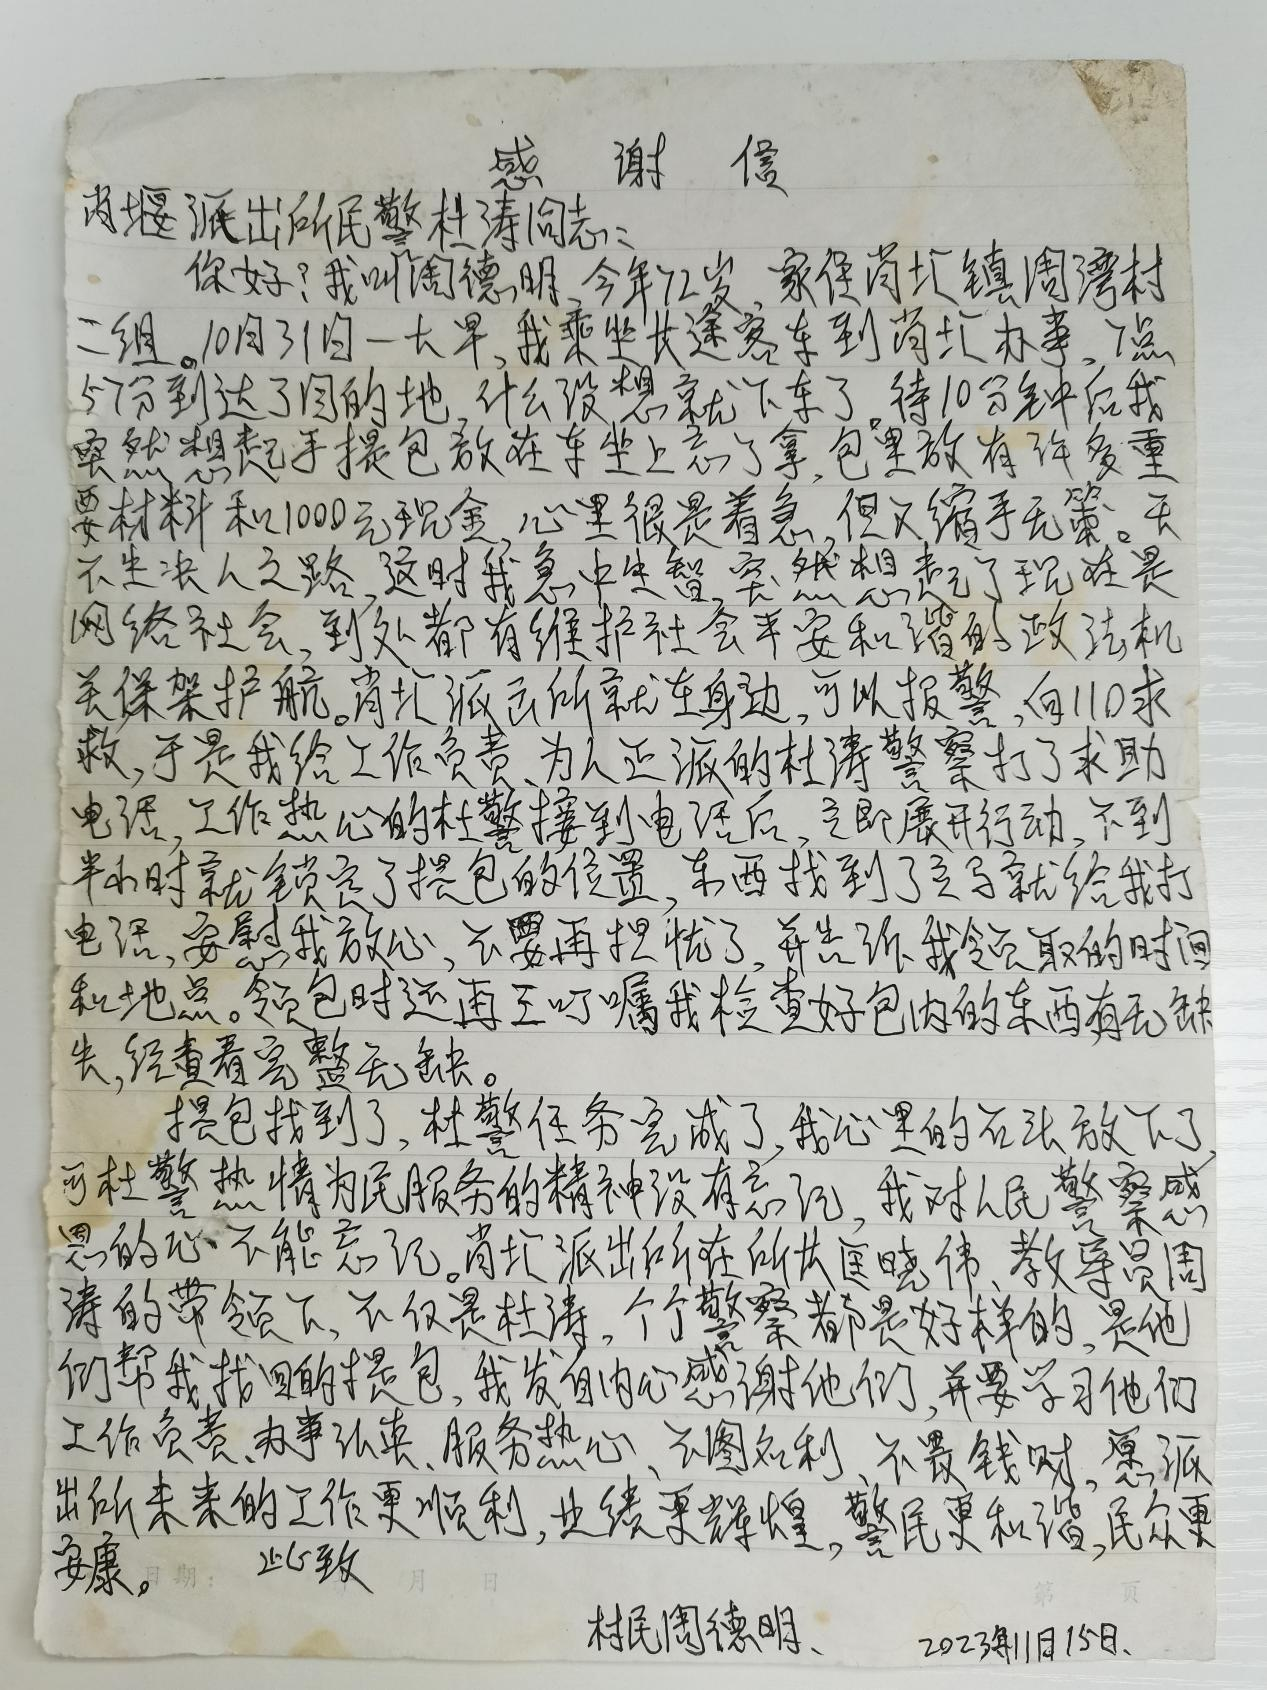 感谢信
肖堰派出所民警杜涛同志:
你好?我叫周德明,今年72岁,家住肖堰镇周湾村
二组。10月31日一大早,我乘坐长途客车到肖堰办事,7点
57分到达了目的地,什么没想就下车了。待10分钟后我
突然想起手提包放在车坐上忘了拿,包里放有许多重
要材料和1000元现金,心里很是着急,但又缩手无策。天
不生决人之路,这时我急中生智,突然想起了现在是
网络社会,到处都有维护社会平安和谐的政法机
关保架护航。肖堰派出所就在身边,可以报警,向110求
救,于是我给工作负责、为人正派的杜涛警察打了求助
电话,工作热心的杜警接到电话后,立即展开行动,不到
半小时就锁定了提包的位置,东西找到了立马就给我打
电话,安慰我放心,不要再担忧了,并告诉我领取的时间
和地点。领包时还再三叮嘱我检查好包内的东西有无缺
失,经查看完整无缺。
提包找到了,杜警任务完成了,我心里的石头放下了,
可杜警热情为民服务的精神没有忘记,我对人民警察感
恩的心不能忘记。肖堰派出所在所长匡晓伟、教导员周
涛的带领下,不仅是杜涛,个个警察都是好样的,是他
们帮我找回的提包,我发自内心感谢他们,并要学习他们
工作负责、办事认真、服务热心、不图名利、不畏钱财,愿派
出所未来的工作更顺利,业绩更辉煌,警民更和谐,民众更
安康。 此致
日期: 月 日 第 页
村民周德明、 2023年11月15日、